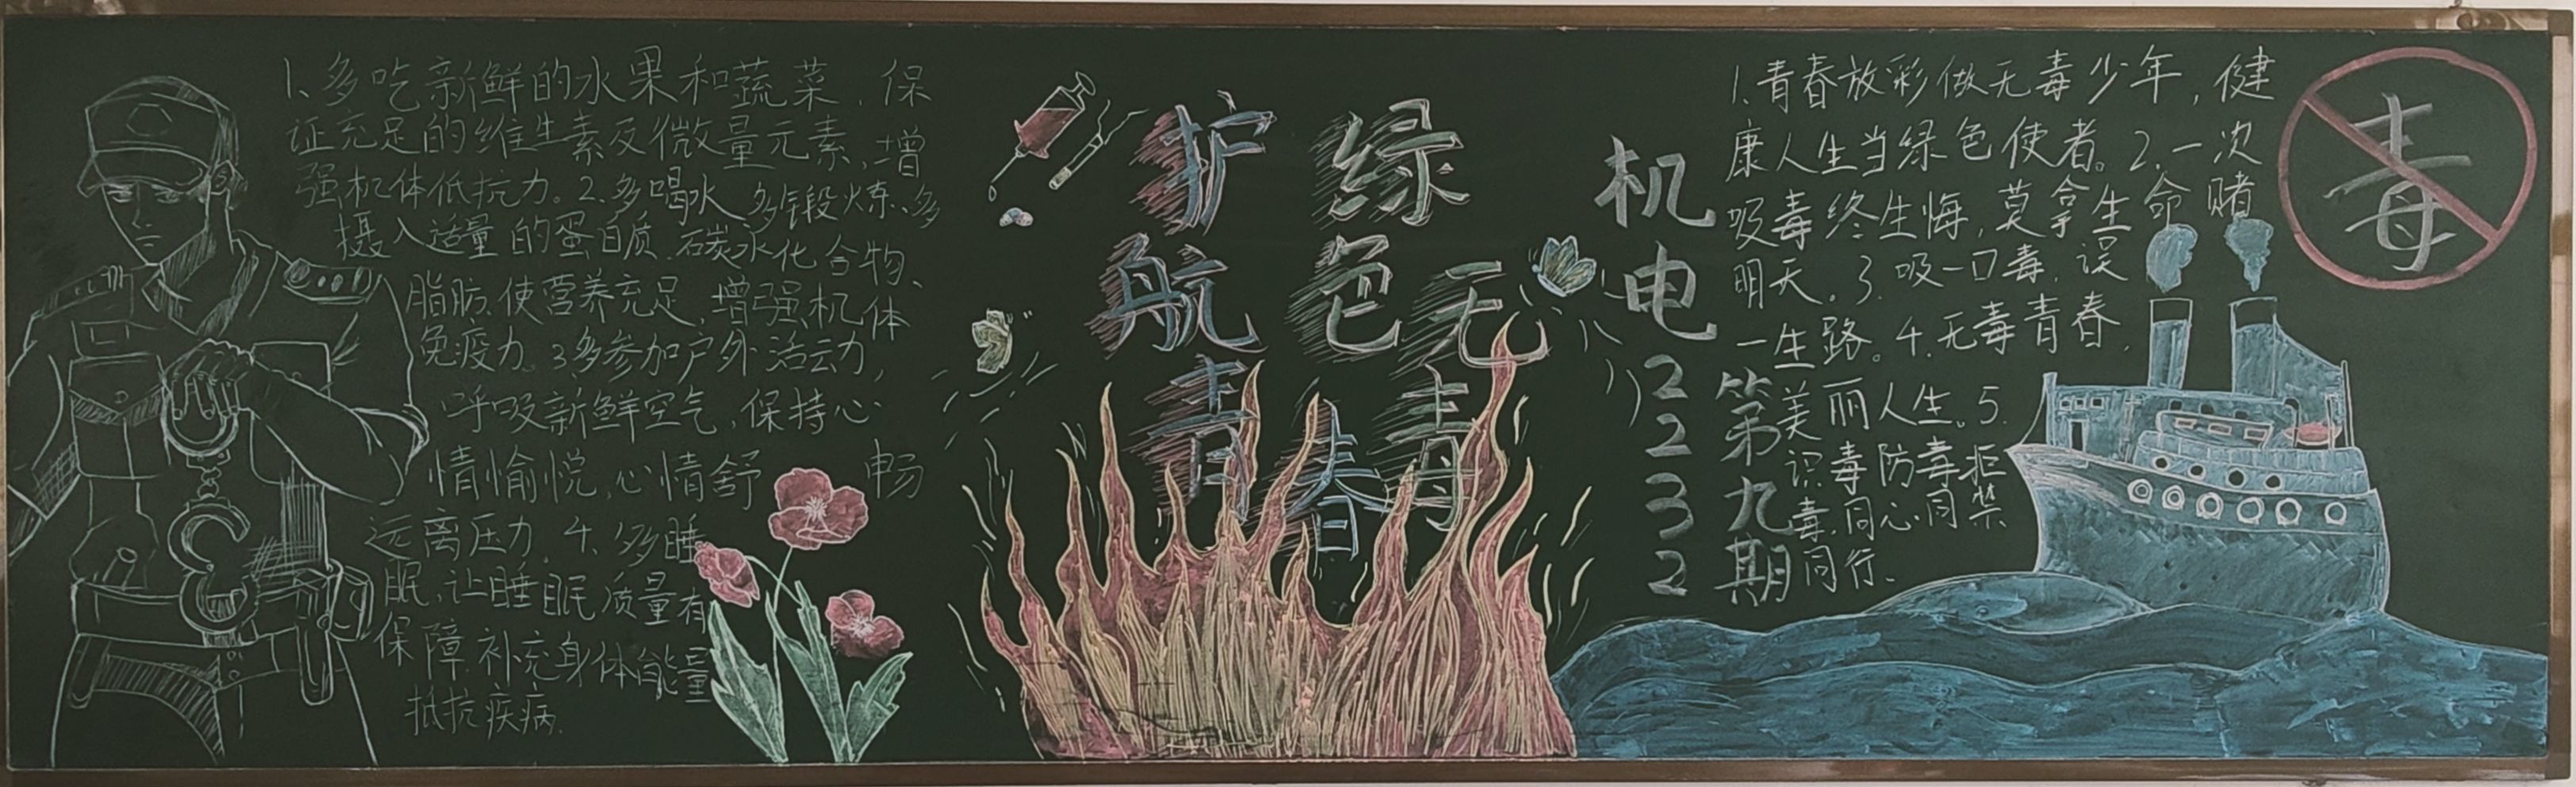 1、多吃新鲜的水果和蔬菜，保
证充足的维生素及微量元素，增
强机体低抗力。2.多喝水、多锻炼、多
摄入适量的蛋白质、碳水化合物、
脂肪、使营养充足，增强机体
免疫力。3多参加户外活动，
呼吸新鲜空气，保持心
情愉悦，心情舒畅
远离压力。4.多睡
眠，让睡眠质量有
保障补充身体能量
抵抗疾病.
护航青春
绿色无毒
机电2232
第九期
1.青春放彩做无毒少年，健
康人生当绿色使者。2.一次
吸毒终生悔，莫拿生命赌
明天。3.吸一口毒，误
一生路。4.无毒青春，
美丽人生。5.
识毒防毒拒
毒，同心同禁
同行.
毒